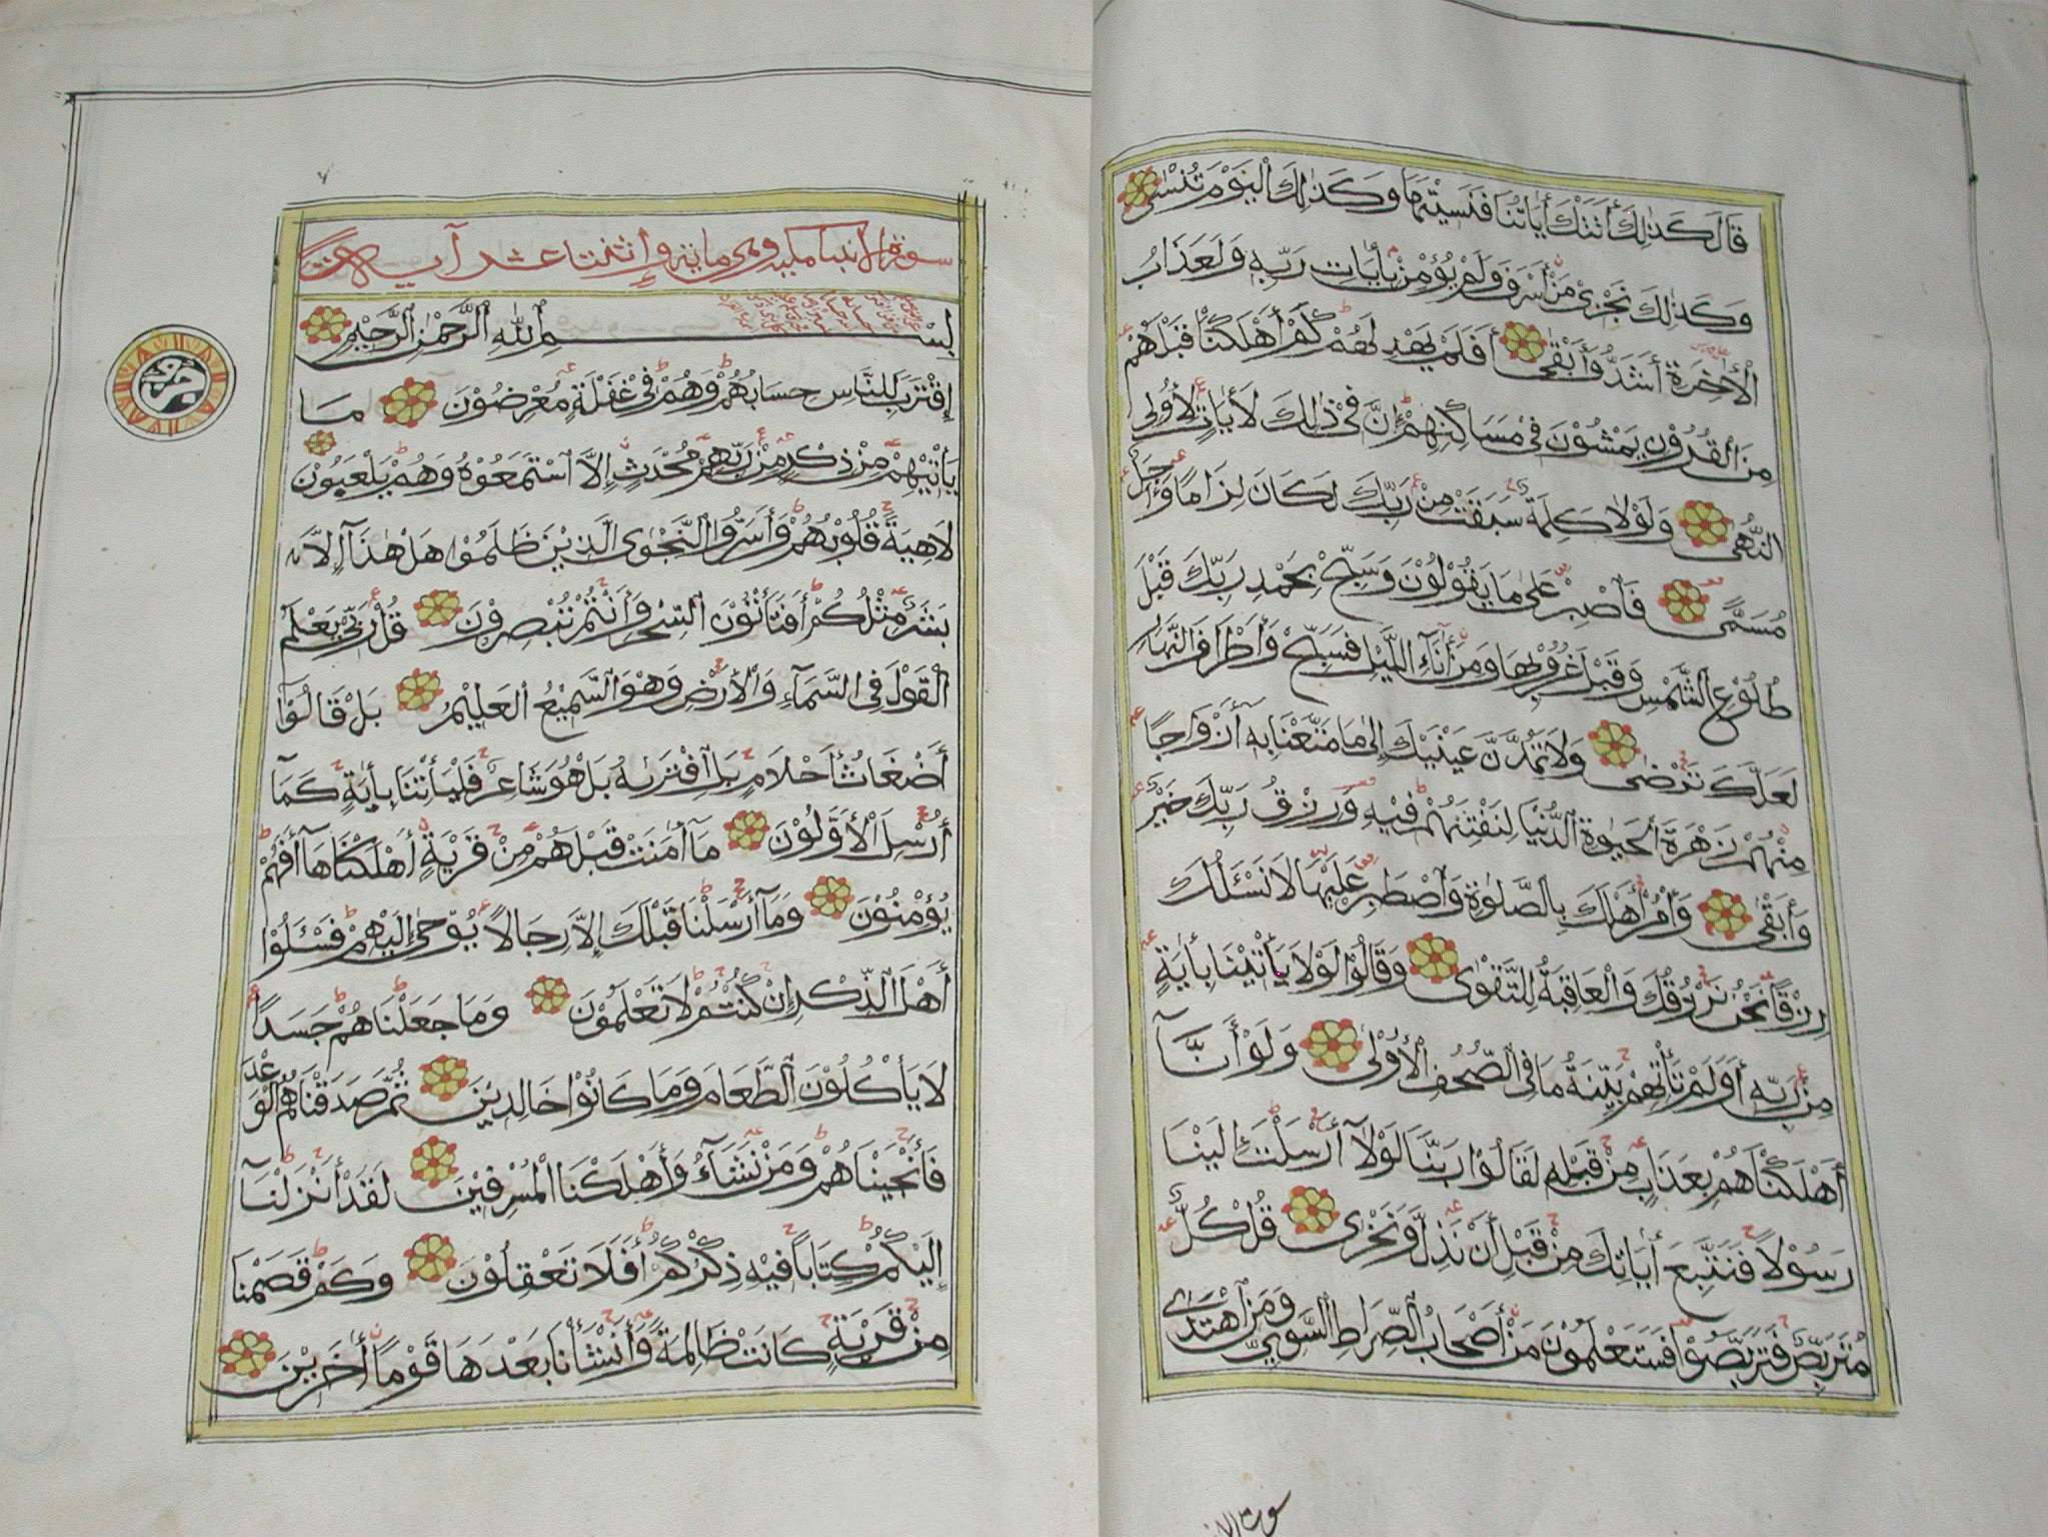 قَالَ كَذٰلِكَ أَتَتْكَ أٰيَاتُنَا فَنَسِيْتَهَا وَكَذٰلِكَ الْيَوْمَ تُنْسٰى
وَكَذٰلِكَ نَجْزِيْ مَنْ أَسْرَفَ وَلَمْ يُؤْمِنْ بِأٰيَاتِ رَبِّهٖ وَلَعَذَابُ
الْأٰخِرَةِ أَشَدُّ وَأَبْقٰى أَفَلَمْ يَهْدِ لَهُمْ كَمْ أَهْلَكْنَا قَبْلَهُمْ
مِنَ الْقُرُوْنِ يَمْشُوْنَ فِيْ مَسَاكِنِهِمْ إِنَّ فِيْ ذٰلِكَ لَأٰيَاتٍ لِأُولِى
النُّهٰى وَلَوْلَا كَلِمَةٌ سَبَقَتْ مِنْ رَبِّكَ لَكَانَ لِزَامًا وَأَجَلٌ
مُسَمًّى فَاصْبِرْ عَلٰى مَا يَقُوْلُوْنَ وَسَبِّحْ بِحَمْدِ رَبِّكَ قَبْلَ
طُلُوْعِ الشَّمْسِ وَقَبْلَ غُرُوْبِهَا وَمِنْ أٰنَآءِ الَّيْلِ فَسَبِّحْ وَأَطْرَافَ النَّهَارِ
لَعَلَّكَ تَرْضٰى وَلَا تَمُدَّنَّ عَيْنَيْكَ إِلٰى مَا مَتَّعْنَا بِهٖ أَزْوَاجًا
مِنْهُمْ زَهْرَةَ الْحَيٰوةِ الدُّنْيَا لِنَفْتِنَهُمْ فِيْهِ وَرِزْقُ رَبِّكَ خَيْرٌ
وَأَبْقٰى وَأْمُرْ أَهْلَكَ بِالصَّلٰوةِ وَاصْطَبِرْ عَلَيْهَا لَا نَسْئَلُكَ
رِزْقًا نَحْنُ نَرْزُقُكَ وَالْعَاقِبَةُ لِلتَّقْوٰى وَقَالُوْا لَوْلَا يَأْتِيْنَا بِأٰيَةٍ
مِنْ رَبِّهٖ أَوَلَمْ تَأْتِهِمْ بَيِّنَةُ مَا فِى الصُّحُفِ الْأُوْلٰى وَلَوْ أَنَّآ
أَهْلَكْنَاهُمْ بِعَذَابٍ مِنْ قَبْلِهٖ لَقَالُوْا رَبَّنَا لَوْلَآ أَرْسَلْتَ إِلَيْنَا
رَسُوْلًا فَنَتَّبِعَ أٰيَاتِكَ مِنْ قَبْلِ أَنْ نَذِلَّ وَنَخْزٰى قُلْ كُلٌّ
مُتَرَبِّصٌ فَتَرَبَّصُوْا فَسَتَعْلَمُوْنَ مَنْ أَصْحَابُ الصِّرَاطِ السَّوِيِّ وَمَنِ اهْتَدٰى
سورة الانبيا مكيه وهي ماية وإثنتا عشر آيه
بِسْمِ اللهِ الرَّحْمٰنِ الرَّحِيْمِ
إِقْتَرَبَ لِلنَّاسِ حِسَابُهُمْ وَهُمْ فِيْ غَفْلَةٍ مُعْرِضُوْنَ مَا
يَأْتِيْهِمْ مِنْ ذِكْرٍ مِنْ رَبِّهِمْ مُحْدَثٍ إِلَّا اسْتَمَعُوْهُ وَهُمْ يَلْعَبُوْنَ
لَاهِيَةً قُلُوْبُهُمْ وَأَسَرُّوا النَّجْوَى الَّذِيْنَ ظَلَمُوْا هَلْ هٰذَآ إِلَّا
بَشَرٌ مِثْلُكُمْ أَفَتَأْتُوْنَ السِّحْرَ وَأَنْتُمْ تُبْصِرُوْنَ قُلْ رَبِّيْ يَعْلَمُ
الْقَوْلَ فِى السَّمَآءِ وَالْأَرْضِ وَهْوَ السَّمِيْعُ الْعَلِيْمُ بَلْ قَالُوْآ
أَضْغَاثُ أَحْلَامٍ بَلِ افْتَرٰىهُ بَلْ هُوَ شَاعِرٌ فَلْيَأْتِنَا بِأٰيَةٍ كَمَآ
أُرْسِلَ الْأَوَّلُوْنَ مَآ أٰمَنَتْ قَبْلَهُمْ مِنْ قَرْيَةٍ أَهْلَكْنَاهَآ أَفَهُمْ
يُؤْمِنُوْنَ وَمَآ أَرْسَلْنَا قَبْلَكَ إِلَّا رِجَالًا يُوْحٰى إِلَيْهِمْ فَسْئَلُوْا
أَهْلَ الذِّكْرِ إِنْ كُنْتُمْ لَا تَعْلَمُوْنَ وَمَا جَعَلْنَاهُمْ جَسَدًا
لَا يَأْكُلُوْنَ الطَّعَامَ وَمَا كَانُوْا خَالِدِيْنَ ثُمَّ صَدَقْنَاهُمُ الْوَعْدَ
فَأَنْجَيْنَاهُمْ وَمَنْ نَشَآءُ وَأَهْلَكْنَا الْمُسْرِفِيْنَ لَقَدْ أَنْزَلْنَآ
إِلَيْكُمْ كِتَابًا فِيْهِ ذِكْرُكُمْ أَفَلَا تَعْقِلُوْنَ وَكَمْ قَصَمْنَا
مِنْ قَرْيَةٍ كَانَتْ ظَالِمَةً وَأَنْشَأْنَا بَعْدَهَا قَوْمًا أٰخَرِيْنَ